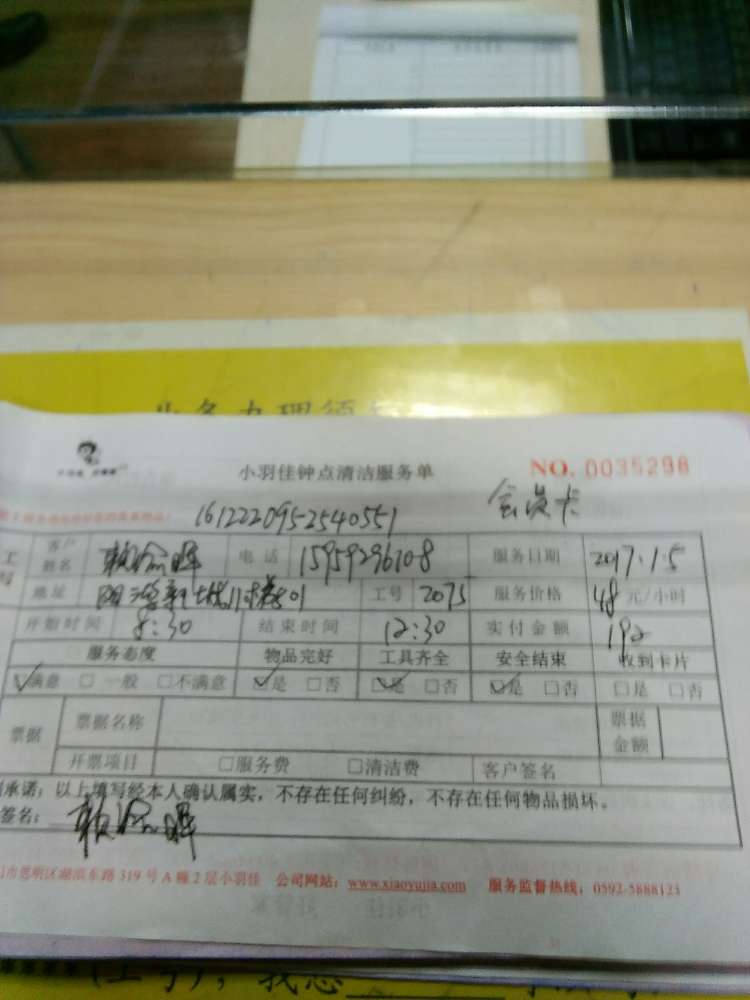 业务办理须知
小羽佳钟点清洁服务单 NO. 0035298
1612220952540551 会员卡
客户姓名 电话 15959296108 服务日期 2017.1.5
地址 工号 2075 服务价格 48 元/小时
开始时间 8:30 结束时间 12:30 实付金额 192
服务态度 物品完好 工具齐全 安全结束 收到卡片
☑满意 □一般 □不满意 ☑是 □否 ☑是 □否 ☑是 □否 □是 □否
票据 票据名称 票据金额
开票项目 □服务费 □清洁费 客户签名
承诺：以上填写经本人确认属实，不存在任何纠纷，不存在任何物品损坏。
签名：
市思明区湖滨东路319号A幢2层小羽佳 公司网站：www.xiaoyujia.com 服务监督热线：0592-5888123